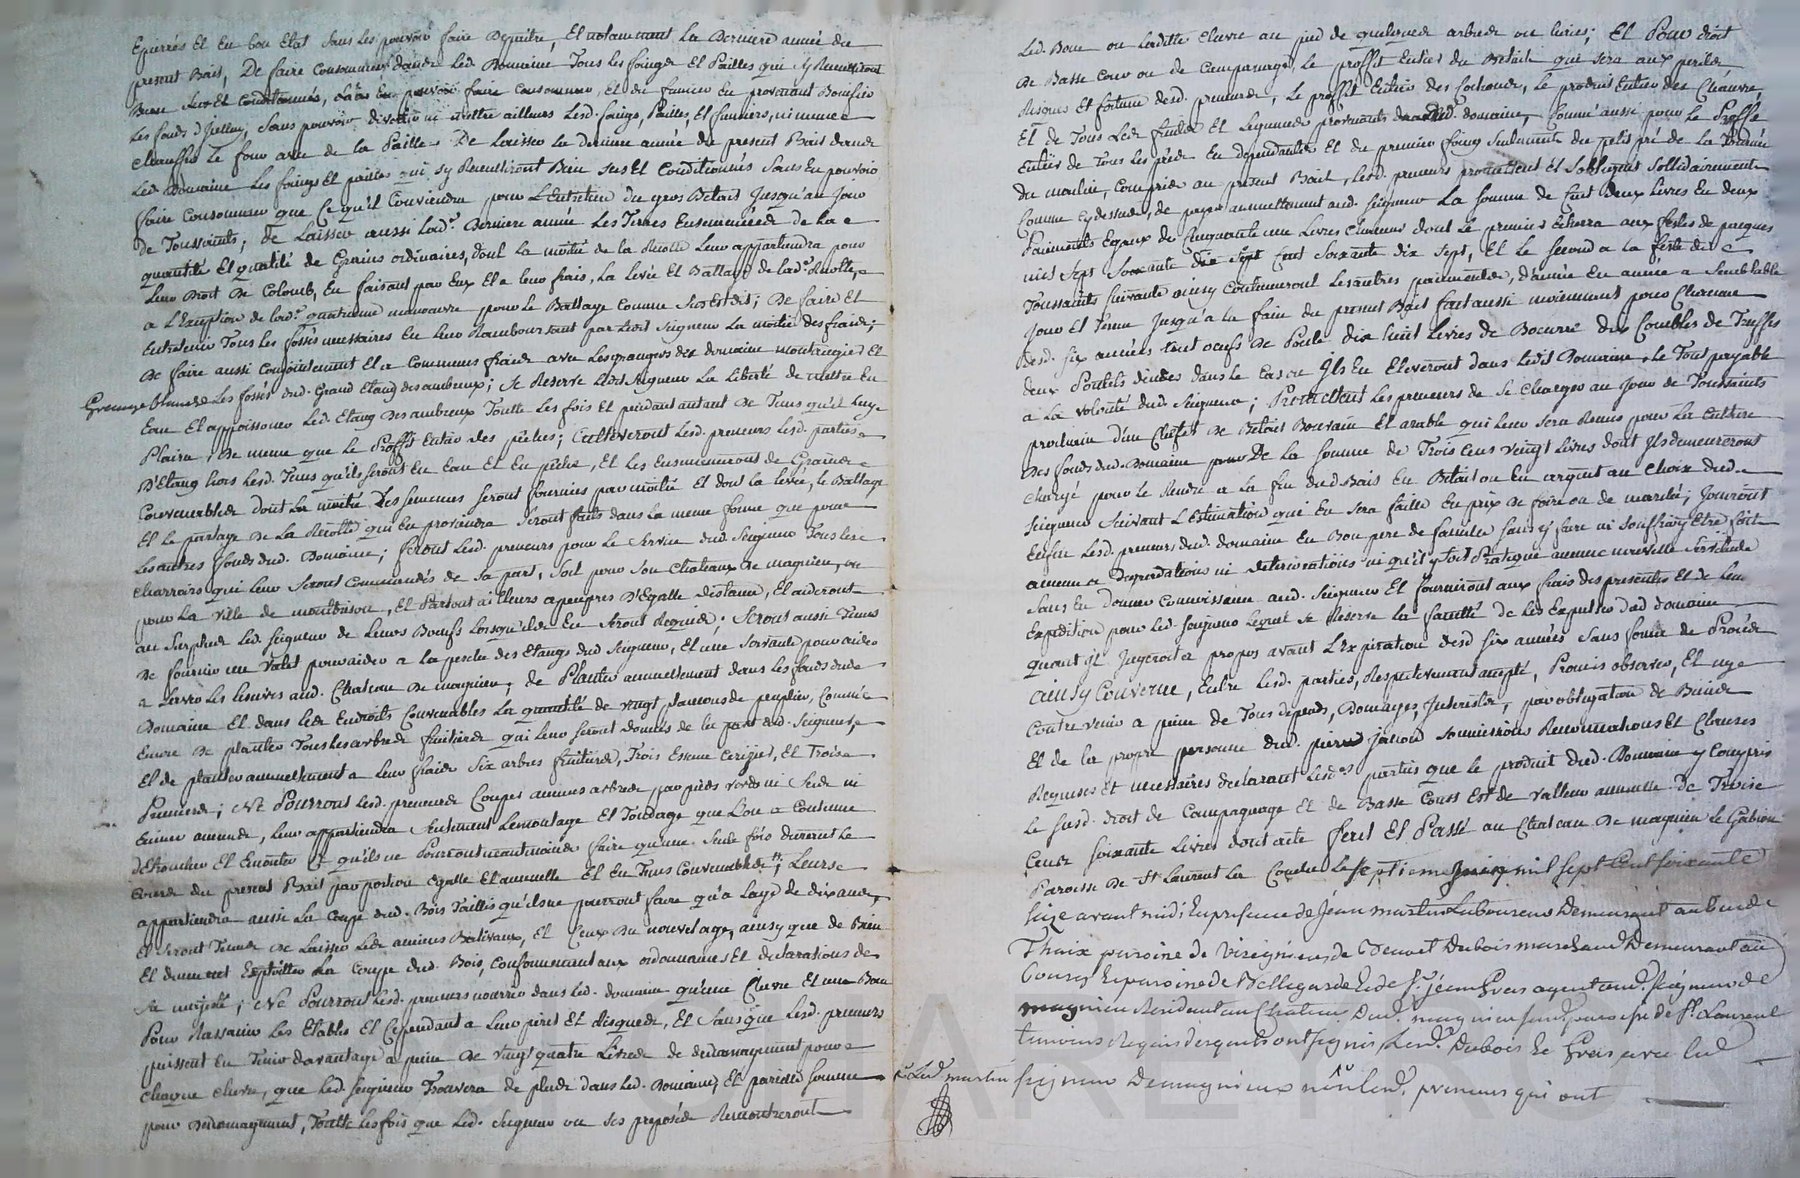 Epierrés Et En bon Etat Sans Les pouvoir faire Depaitre, Et notamment La Derniere année du
present Bail, De faire Consommer dans Led. Domaine Tous les foings Et Pailles qui s'y Recueilliront
Bien Secs Et Conditionnés, sans En pouvoir faire Consommer, et du fumier En provenant Bonifier
Les fonds d'Jcelluy, Sans pouvoir divertir ni mettre ailleurs Lesd. foings, Pailles, Et fumiers, ni meme
chauffer Le four avec de la Paille. De Laisser La Derniere année du present Bail dans
Led. Domaine Les foings Et pailles qui s'y Recueilliront Bien secs Et Conditionnés Sans En pouvoir
faire Consommer que Ce qu'il Conviendra pour L'Entretien du gros Betail Jusqu'au Jour
de Toussaints; De Laisser aussi Lad.e Derniere année Les Terres Ensemencées de la
quantité Et qualité de Grains ordinaires, dont La moitié de la Recolte Leur appartiendra pour
Leur Droit De Colons, En faisant par Eux Et a Leur frais, La Levée Et Battage de Lad.e Recolte,
a L'Exception de Lad.e quatrieme manoeuvre pour le Battage Comme Sus Est dit; De faire Et
Entretenir Tous les fossés necessaires En Leur Remboursant par Ledit Seigneur La moitié des fraix;
De faire aussi Conjointement Et a Communs fraix avec Les grangers des domaines montrugies Et
Grange blanche Les fossés dud. Grand Etang des ambreux; Se Reserve Ledit Seigneur La Liberté de mettre En
Eau Et appoissonner Led. Etang Des ambreux Toutte Les fois Et pendant autant De Tems qu'il Luy
Plaira, De meme que Le Proffit Entier des pêches; Cultiveront Lesd. preneurs Lesd. parties
D'Etang hors Lesd. Tems qu'ils seront En Eau Et En pêche, Et Les Ensemenceront de Graines
Convenables dont La moitié Des semences seront fournies par moitié Et dont La Levée, Le Battage
Et Le partage De La Recolte qui En proviendra Seront faits dans La meme forme que pour
Les autres fonds dud. Domaine; feront Lesd. preneurs pour Le Service dud. Seigneur Tous Les
charrois qui Leur Seront Commandés de Sa part, Soit pour Son Chateau De magnieu, ou
pour La Ville de montbrison, Et Partout ailleurs apeupres D'Egalle distance, Et aideront
au Surplus Led. Seigneur de Leurs Boeufs Lorsqu'ils En Seront Requis; Seront aussi Tenus
De fournir un Valet pour aider a La pesche des Etangs dud. Seigneur, Et une Servante pour aider
a Serrer Les Lessives aud. Chateau De magnieu; de Planter annuellement dans Les fonds dud.
Domaine Et dans Les Endroits Convenables La quantité de vingt plancons de peuplier, Comme
Encore De planter Tous les arbres fruitiers qui Leur Seront Donnés de La part dud. Seigneur,
Et de planter annuellement a Leur fraix Six arbres fruitiers, Trois Essence Cerizier, Et Trois
Pruniers; Ne Pourront Lesd. preneurs Couper aucuns arbres par pieds verds ni Secs ni
Ecimer aucuns, Leur appartiendra Seulement L'Emontage Et Tondage que L'on a Coutume
d'Etroncher Et Emonter Ce qu'ils ne Pourront neantmoins faire qu'une Seule fois durant Le
Cours du present Bail par portion Egalle Et annuelle Et En Tems Convenables; Leurs
appartiendra aussi La Coupe dud. Bois Taillis qu'ils ne pourront faire qu'a L'age de dix ans,
Et Seront Tenus De Laisser Les anciens Baliveaux, Et Ceux Du nouvel age, ainsy que de Bien
Et duement Exploiter La Coupe dud. Bois, Conformement aux ordonnances Et declarations de
Sa majesté; Ne Pourront Lesd. preneurs nourrir dans Led. domaine qu'une Chevre Et un Bouc
Pour Rassainir Les Etables Et Cependant a Leur peril Et Risques, Et Sans que Lesd. preneurs
puissent En Tenir davantage a peine De vingt quatre Livres de dedomagement pour
chaque chevre, que Led. Seigneur Trouvera de plus dans Led. Domaine Et pareille Somme
pour Dedomagement, Toutte Les fois que Led. Seigneur ou Ses preposés Rencontreront
Led. Bouc ou Laditte Chevre au pied de quelques arbres ou haies; Et Pour droit
De Basse Cour ou de Campanage Le proffit Entier du Betail qui sera aux perils
Risques Et fortune desd. preneurs, Le proffit Entier des Cochons, Le produit Entier des Chanvre,
Et de Tous Les fruits Et Legumes provenants dud. domaine, Comme aussi pour Le Proffit
Entier de Tous Les prés En dependants Et du premier foing Seulement du petit pré de La
du moulin, Compris au present Bail, Lesd. preneurs promettent Et S'obligent Sollidairement
Comme Cy dessus, de payer annuellement aud. Seigneur La Somme de Cent Deux Livres En deux
Paiements Egaux de Cinquante une Livres chacun dont Le premier Echerra aux festes de paques
mil Sept Soixante dix Sept Cent Soixante dix Sept, Et Le Second a La feste de
Toussaints Suivante ainsy Continueront Les autres paiements, d'année En année a Semblable
Jour Et Terme Jusqu'a La fin du present Bail fait aussi moiennant pour Chacune
desd. Six années Cent oeufs De Poule dix huit Livres de Beurre deux Combles de Truffes
deux Poulets dindes dans Le Cas ou Jls En Eleveront dans Ledit Domaine, Le Tout payable
a La volonté dud. Seigneur; Promettent Les preneurs de Se Charger au Jour de Toussaints
prochain d'un Cheptel De Betail Bouvain Et arable qui Leur Sera Remis pour La Culture
Des fonds dud. Domaine pour De La Somme de Trois Cens vingt Livres dont Jls demeureront
Chargé pour Le Rendre a La fin dud. Bail En Betail ou En argent au Choix dud.
Seigneur Suivant L'Estimation qui En Sera faite En prix de foire ou de marché; Jouiront
Enfin Lesd. preneurs dud. domaine En Bon pere de famille Sans y faire ni Souffrir Etre fait
aucune Degradations ni deteriorations ni qu'il y Soit Pratiqué aucune nouvelle Servitude
Sans En donner Connoissance aud. Seigneur Et fourniront aux frais des presentes Et de Leur
Expedition pour Led. Seigneur Lequel Se Reserve La faculté de Les Expulser dud. domaine
quant Jl Jugerat a propos avant L'Expiration desd. Six années Sans forme de Procès
ainsy Convenu, Entre Lesd. parties, Respectivement accepté, Promis observer, Et ny
Contrevenir a peine de Tous depends, Domages, Interests, par obligation de Biens
Et de La propre personne dud. pierre Janoud Soumissions Renonciations Et Clauses
Requises Et necessaires declarant Lesd.es parties que Le produit dud. Domaine y Compris
Le Susd. droit de Campanage Et de Basse Cour Est de valleur annuelle De Trois
Cents Soixante Livres dont acte fait Et Passé au Chateau De magnieu Le Gabion
Paroisse De St Laurent La Conche Le Septieme Juin mil Sept Cent Soixante
Seize avant midi En presence de Jean martin Laboureur Demeurant au lieu de
Thaix paroisse de Virignieu, de Benoit Dubois marchand Demeurant au
Bourg Et paroisse de Bellegarde Et de Sr. jean Grais agent dud. Seigneur de
magnieu Residant au Chateau Dud. magnieu Susd. paroisse de St. Laurent
temoins Requis desquels ont signés Lesd. Dubois Et Grais avec Led.
Seigneur De magnieux non Lesd. preneurs qui ont
ni Led. martin